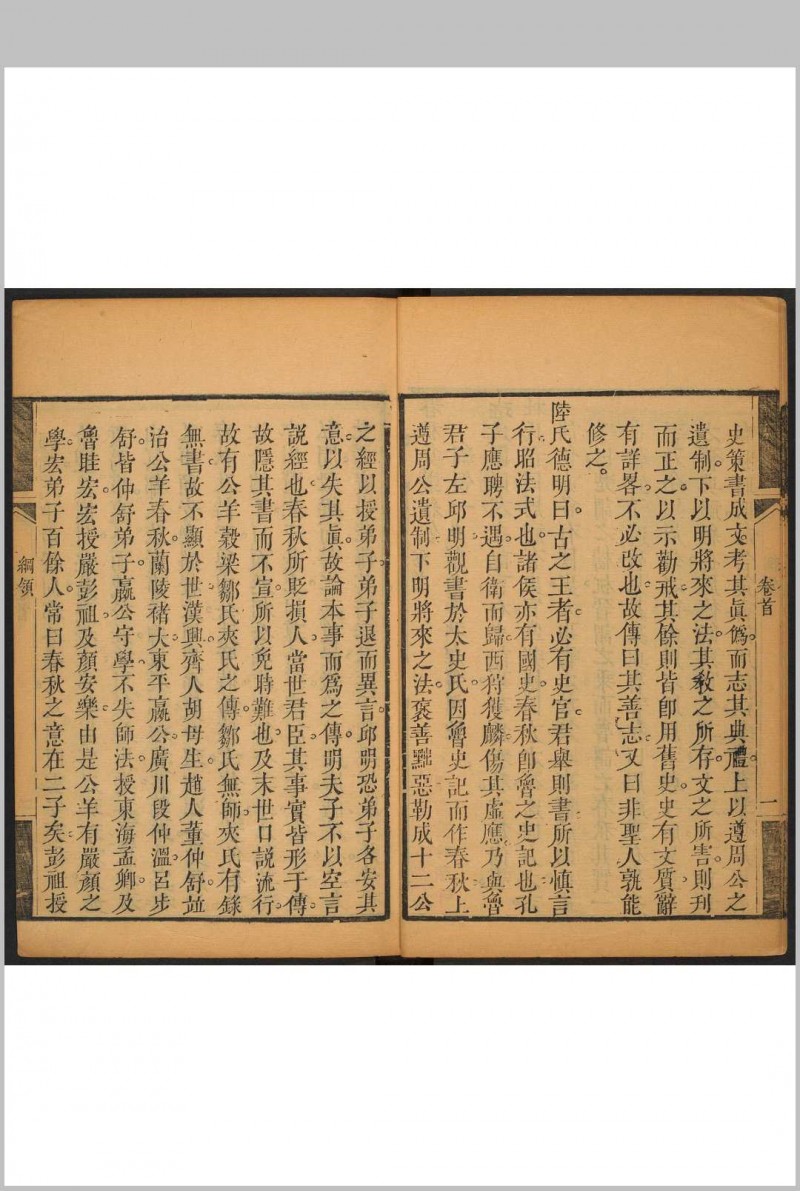 卷首
一
史策書成文考其眞僞而志其典禮上以遵周公之
遺制下以明將來之法其敎之所存文之所害則刋
而正之以示勸戒其餘則皆卽用舊史史有文質辭
有詳畧不必改也故傳曰其善志又曰非聖人孰能
修之
陸氏德明曰古之王者必有史官君舉則書所以愼言
行昭法式也諸侯亦有國史春秋卽魯之史記也孔
子應聘不遇自衛而歸西狩獲麟傷其虛應乃與魯
君子左邱明觀書於太史氏因魯史記而作春秋上
遵周公遺制下明將來之法褒善黜惡勒成十二公
之經以授弟子弟子退而異言邱明恐弟子各安其
意以失其眞故論本事而爲之傳明夫子不以空言
說經也春秋所貶損人當世君臣其事實皆形于傳
故隱其書而不宣所以免時難也及末世口說流行
故有公羊穀梁鄒氏夾氏之傳鄒氏無師夾氏有錄
無書故不顯於世漢興齊人胡母生趙人董仲舒並
治公羊春秋蘭陵褚大東平嬴公廣川段仲溫呂步
舒皆仲舒弟子嬴公守學不失師法授東海孟卿及
魯眭宏宏授嚴彭祖及顏安樂由是公羊有嚴顏之
學宏弟子百餘人常曰春秋之意在二子矣彭祖授
綱領